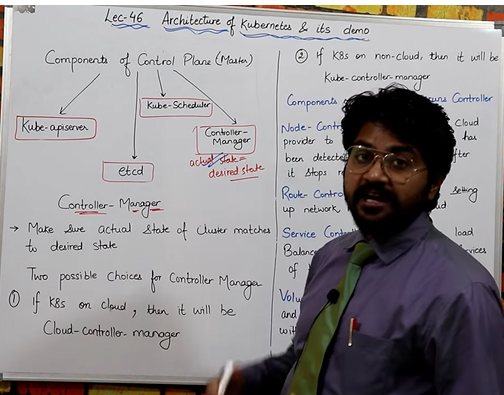 Lec-46 Architecture of Kubernetes & its demo
Components of Control Plane (Master)
Kube-apiserver
Kube-Scheduler
Controller-
Manager
actual state =
desired state
etcd
Controller-Manager
→ Make sure actual state of cluster matches
to desired state
Two possible choices for Controller Manager
① if K8s on cloud, then it will be
Cloud-controller-manager
② if K8s on non-cloud, then it will be
Kube-controller-manager
Components on Controller
Node- Cloud
provider to has
been
it stops
Route- setting
up network,
Service load
Balance
of
and